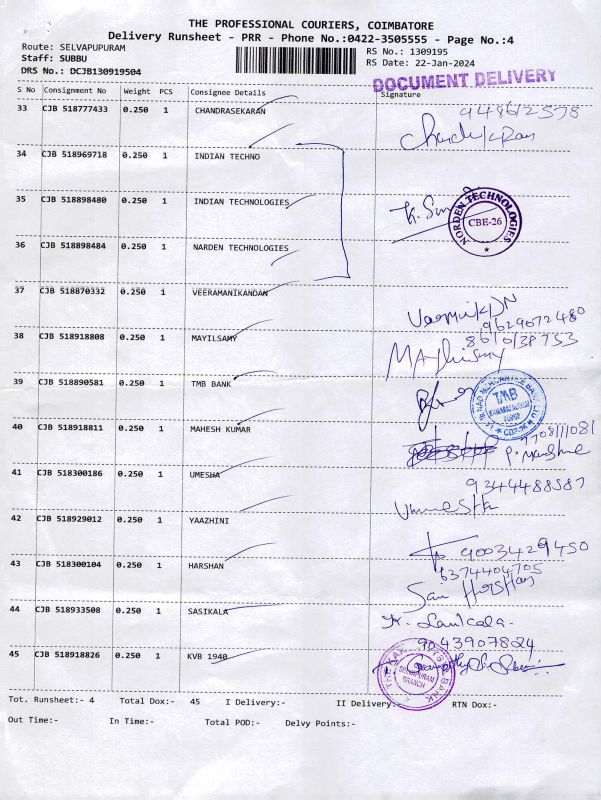 THE PROFESSIONAL COURIERS, COIMBATORE
Delivery Runsheet - PRR - Phone No.:0422-3505555 - Page No.:4
Route: SELVAPUPURAM
RS No.: 1309195
Staff: SUBBU
RS Date: 22-Jan-2024
DRS No.: DCJB130919504
DOCUMENT DELIVERY
S No Consignment No Weight PCS Consignee Details Signature
33 CJB 518777433 0.250 1 CHANDRASEKARAN
34 CJB 518969718 0.250 1 INDIAN TECHNO
35 CJB 518898480 0.250 1 INDIAN TECHNOLOGIES
NORDEN TECHNOLOGIES
CBE-26
36 CJB 518898484 0.250 1 NARDEN TECHNOLOGIES
37 CJB 518870332 0.250 1 VEERAMANIKANDAN
9629072480
38 CJB 518918808 0.250 1 MAYILSAMY
39 CJB 518890581 0.250 1 TMB BANK
TMB
40 CJB 518918811 0.250 1 MAHESH KUMAR
41 CJB 518300186 0.250 1 UMESHA
9344488587
42 CJB 518929012 0.250 1 YAAZHINI
9003429450
43 CJB 518300104 0.250 1 HARSHAN
6374404705
44 CJB 518933508 0.250 1 SASIKALA
9043907824
45 CJB 518918826 0.250 1 KVB 1940
SELVAPURAM
BRANCH
Tot. Runsheet:- 4 Total Dox:- 45 I Delivery:- II Delivery:- RTN Dox:-
Out Time:- In Time:- Total POD:- Delvy Points:-